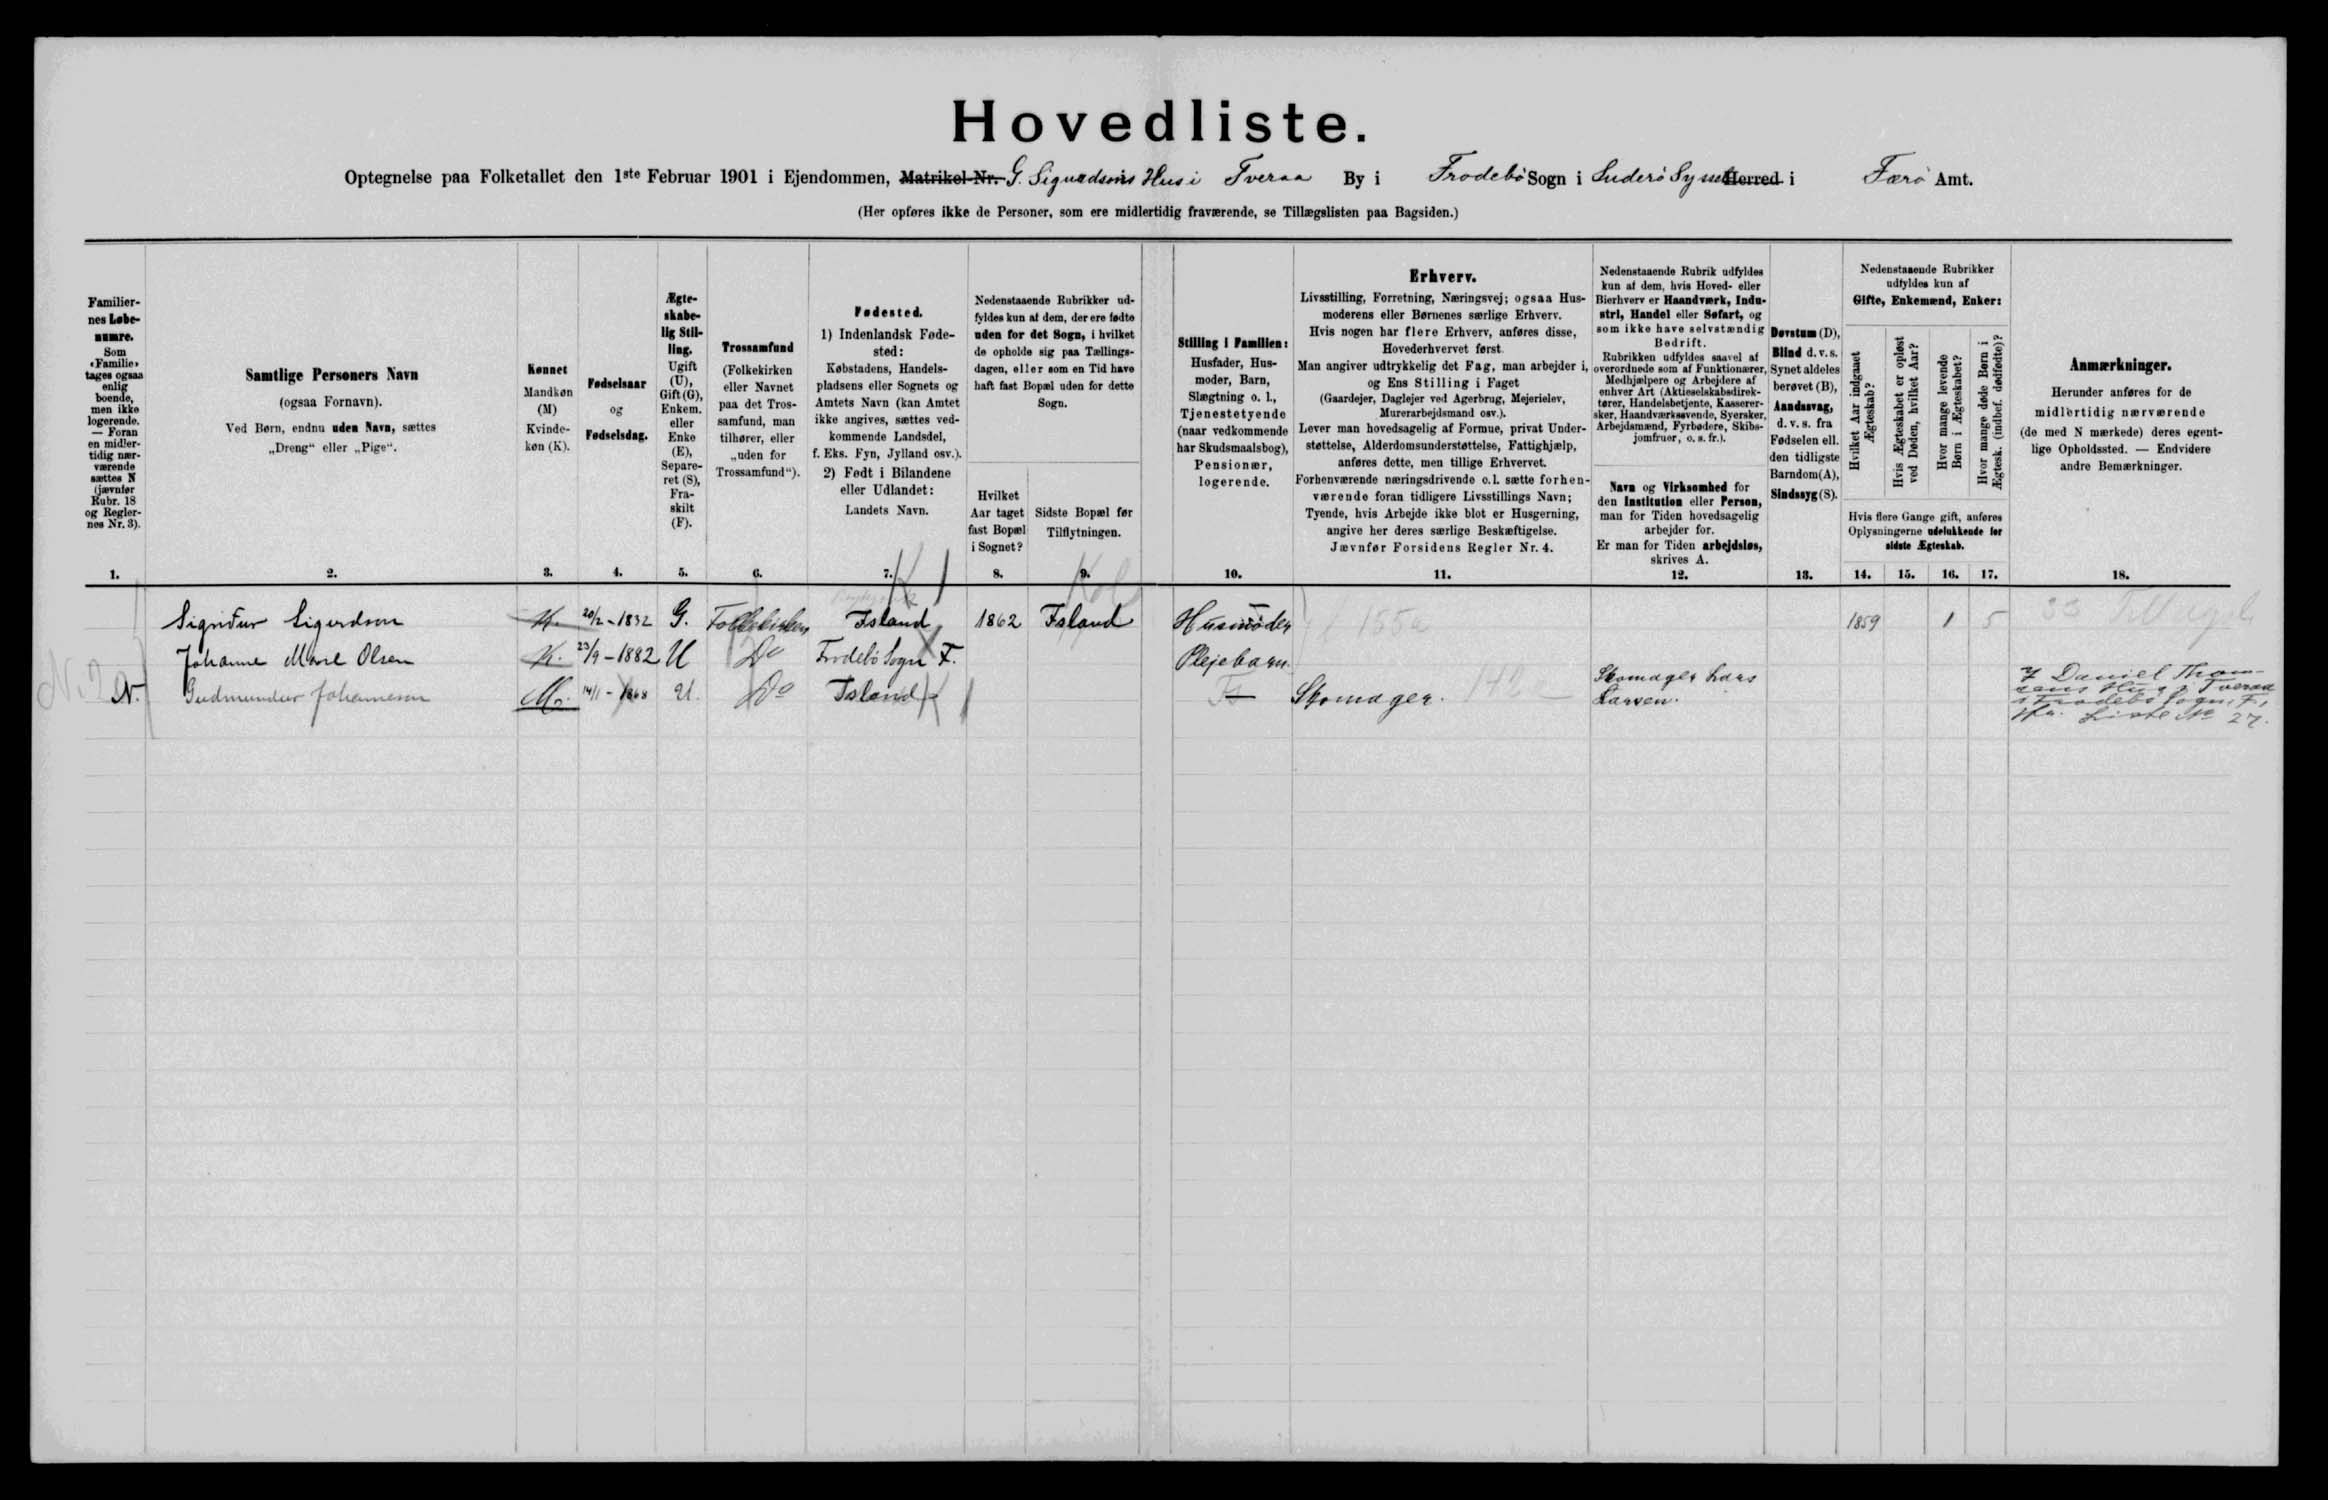 Hovedliste.
Optegnelse paa Folketallet den 1ste Februar 1901 i Ejendommen, Matrikel-Nr. G. Sigurdsons Hus i Tveraa By i Frodebö Sogn i Suderö Syssel Herred i Færö Amt.
(Her opføres ikke de Personer, som ere midlertidig fraværende, se Tillægslisten paa Bagsiden.)
Familier-
nes Løbe-
numre.
Som
«Familie»
tages ogsaa
enlig
boende,
men ikke
logerende.
— Foran
en midler-
tidig nær-
værende
sættes N
(jævnfør
Rubr. 18
og Regler-
nes Nr. 3).
1.
Samtlige Personers Navn
(ogsaa Fornavn).
Ved Børn, endnu uden Navn, sættes
„Dreng“ eller „Pige“.
2.
Kønnet
Mandkøn
(M)
Kvinde-
køn (K).
3.
Fødselsaar
og
Fødselsdag.
4.
Ægte-
skabe-
lig Stil-
ling.
Ugift
(U),
Gift (G),
Enkem.
eller
Enke
(E),
Separe-
ret (S),
Fra-
skilt
(F).
5.
Trossamfund
(Folkekirken
eller Navnet
paa det Tros-
samfund, man
tilhører, eller
„uden for
Trossamfund“).
6.
Fødested.
1) Indenlandsk Føde-
sted:
Købstadens, Handels-
pladsens eller Sognets og
Amtets Navn (kan Amtet
ikke angives, sættes ved-
kommende Landsdel,
f. Eks. Fyn, Jylland osv.).
2) Født i Bilandene
eller Udlandet:
Landets Navn.
7.
Nedenstaaende Rubrikker ud-
fyldes kun af dem, der ere fødte
uden for det Sogn, i hvilket
de opholde sig paa Tællings-
dagen, eller som en Tid have
haft fast Bopæl uden for dette
Sogn.
Hvilket
Aar taget
fast Bopæl
i Sognet?
8.
Sidste Bopæl før
Tilflytningen.
9.
Stilling i Familien:
Husfader, Hus-
moder, Barn,
Slægtning o. l.,
Tjenestetyende
(naar vedkommende
har Skudsmaalsbog),
Pensionær,
logerende.
10.
Erhverv.
Livsstilling, Forretning, Næringsvej; ogsaa Hus-
moderens eller Børnenes særlige Erhverv.
Hvis nogen har flere Erhverv, anføres disse,
Hovederhvervet først.
Man angiver udtrykkelig det Fag, man arbejder i,
og Ens Stilling i Faget
(Gaardejer, Daglejer ved Agerbrug, Mejerielev,
Murerarbejdsmand osv.).
Lever man hovedsagelig af Formue, privat Under-
støttelse, Alderdomsunderstøttelse, Fattighjælp,
anføres dette, men tillige Erhvervet.
Forhenværende næringsdrivende o. l. sætte forhen-
værende foran tidligere Livsstillings Navn;
Tyende, hvis Arbejde ikke blot er Husgerning,
angive her deres særlige Beskæftigelse.
Jævnfør Forsidens Regler Nr. 4.
11.
Nedenstaaende Rubrik udfyldes
kun af dem, hvis Hoved- eller
Bierhverv er Haandværk, Indu-
stri, Handel eller Søfart, og
som ikke have selvstændig
Bedrift.
Rubrikken udfyldes saavel af
overordnede som af Funktionærer,
Medhjælpere og Arbejdere af
enhver Art (Aktieselskabsdirek-
tører, Handelsbetjente, Kasserer-
sker, Haandværkssvende, Syersker,
Arbejdsmænd, Fyrbødere, Skibs-
jomfruer, o. s. fr.).
Navn og Virksomhed for
den Institution eller Person,
man for Tiden hovedsagelig
arbejder for.
Er man for Tiden arbejdsløs,
skrives A.
12.
Døvstum (D),
Blind d. v. s.
Synet aldeles
berøvet (B),
Aandssvag,
d. v. s. fra
Fødselen ell.
den tidligste
Barndom (A),
Sindssyg (S).
13.
Nedenstaaende Rubrikker
udfyldes kun af
Gifte, Enkemænd, Enker:
Hvilket Aar indgaaet
Ægteskab?
Hvis Ægteskabet er opløst
ved Døden, hvilket Aar?
Hvor mange levende
Børn i Ægteskabet?
Hvor mange døde Børn i
Ægtesk. (indbef. dødfødte)?
Hvis flere Gange gift, anføres
Oplysningerne udelukkende for
sidste Ægteskab.
14. 15. 16. 17.
Anmærkninger.
Herunder anføres for de
midlertidig nærværende
(de med N mærkede) deres egent-
lige Opholdssted. — Endvidere
andre Bemærkninger.
18.
Sigridur Sigurdson K. 20/2-1832 G. Folkekirken Island 1862 Island Husmöder 155a 1859 1 5 33
Johanne Marie Olsen K. 23/9-1882 U Do Frodebö Sogn F. Plejebarn.
N. Gudmundur Johanneson M. 14/11-1868 U. Do Island — Skomager. Skomager Lars
Larsen.
I Daniel Thom-
sens Hus i Tveraa
i Frodebö Sogn, F,
Liste No 27.